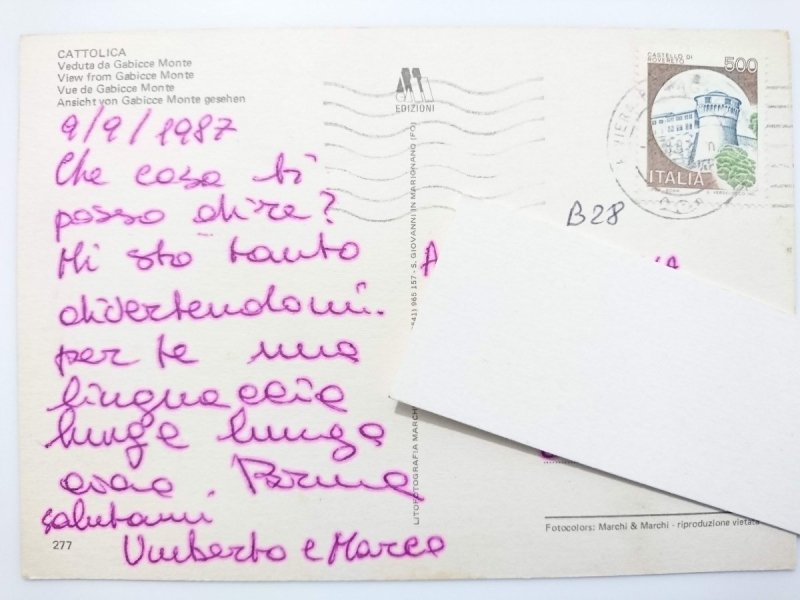 CATTOLICA
Veduta da Gabicce Monte
View from Gabicce Monte
Vue de Gabicce Monte
Ansicht von Gabicce Monte gesehen
9/9/1987
Che cosa ti
posso dire?
Mi sto tanto
divertendomi.
per te una
linguaccia
lunga lunga
ciao.
salutami
Umberto e Marco
277
EDIZIONI
LITOFOTOGRAFIA MARCH
541) 965 157 - S. GIOVANNI IN MARIGNANO (FO)
CASTELLO DI
ROVERETO
500
ITALIA
B28
Fotocolors: Marchi & Marchi - riproduzione vietata